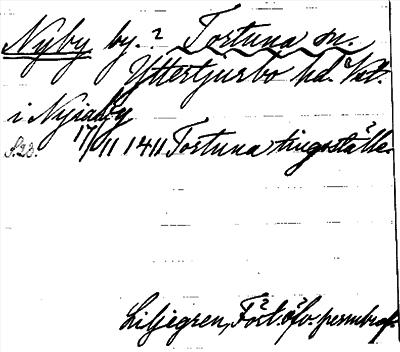 Nyby by.? Tortuna sn.
Yttertjurbo hd. Vst.
i Nyiaby
S.23. 17/11 1411 Tortuna tingsställe.
Liljegren, Fört. öfv. permbref.